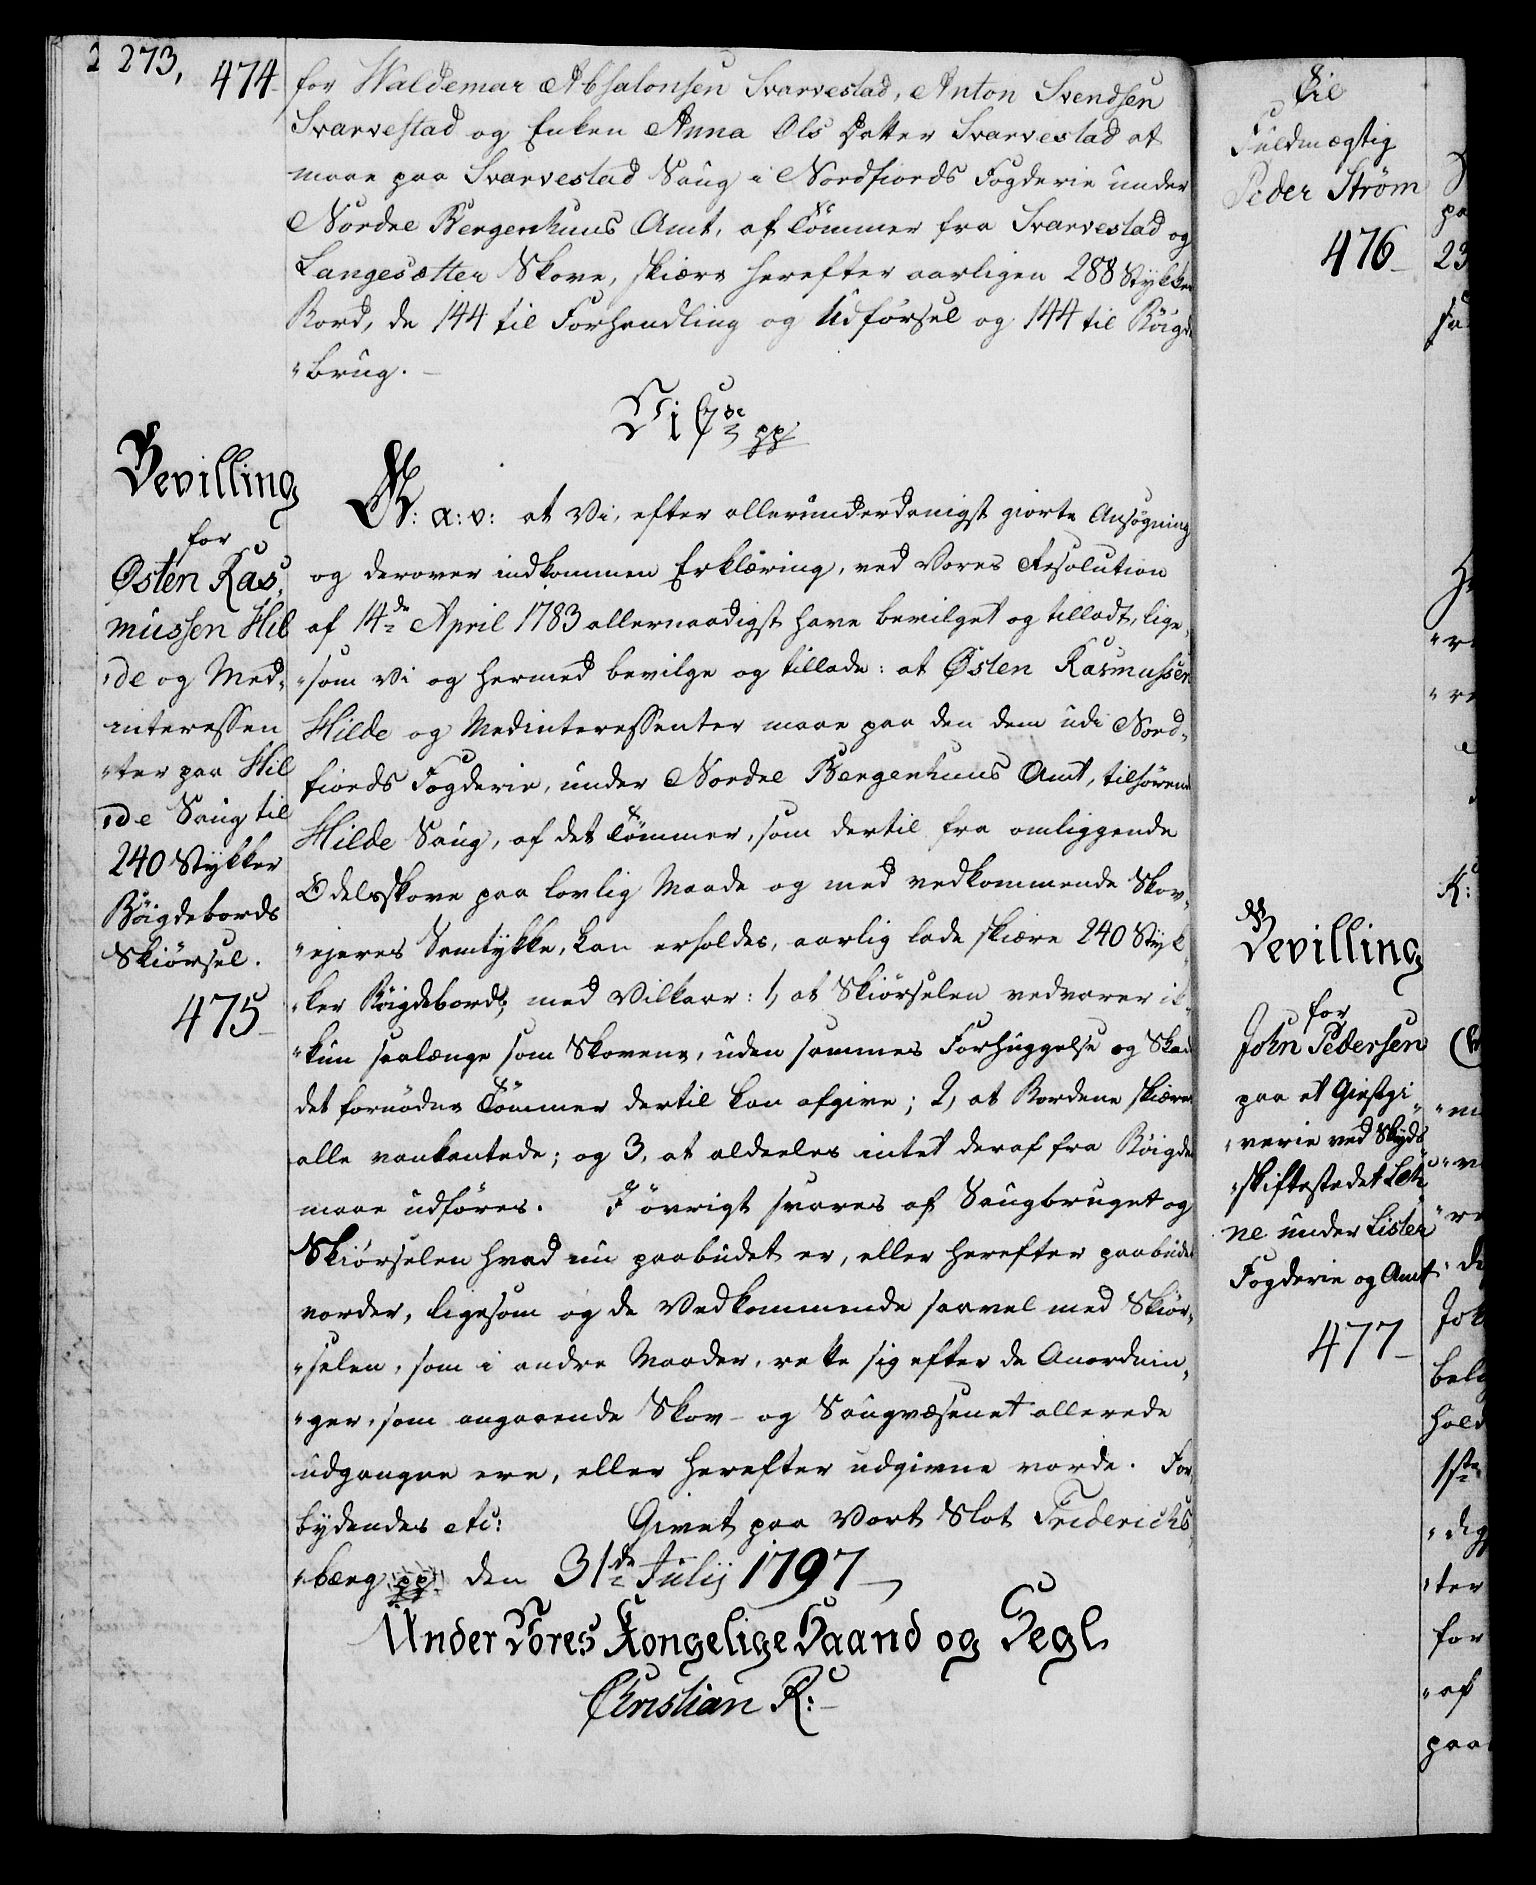 273,
474
for Waldemar Absalonsen Svarvestad, Anton Svendsen
Svarvestad og Enken Anna Ols Datter Svarvestad at
maae paa Svarvestad Saug i Nordfiords Fogderie under
Nordre Bergenhuus Amt, af Tömmer fra Svarvestad og
Langesætter Skove, skiære herefter aarligen 288 Stykker
Bord, de 144 til Forhandling og Udförsel og 144 til Böigde
"brug. –
Vi C 7de pp
Bevilling
for
Østen Ras,
mussen Hil
"de og Med,
interessen
"ter paa Hil
"de Saug til
240 Stykker
Böigdebords
Skiörsel.
475
G: a: v: at Vi, efter allerunderdanigst giorte Ansögning
og derover indkommen Erklæring, ved Vores Resolution
af 14de April 1783 allernaadigst have bevilget og tilladt, lige,
"som Vi og hermed bevilge og tillade: at Østen Rasmussen
Hilde og Medinteressenter maae paa den dem udi Nord,
fiords Fogderie, under Nordre Bergenhuus Amt, tilhörende
Hilde Saug, af det Tömmer, som dertil fra omliggende
Odelsskove paa lovlig Maade og med vedkommende Skov,
"ejeres Samtykke, kan erholdes, aarlig lade skiære 240 Styk,
"ker Böigdebord, med Vilkaar: 1, at Skiörselen vedvarer ik,
"kun saalænge som Skovene, uden sammes Forhuggelse og Skade
det fornödne Tömmer dertil kan afgive; 2, at Bordene skiæres
alle vankantede; og 3, at aldeeles intet deraf fra Böigden
maae udföres. I övrigt svares af Saugbruget og
Skiörselen hvad nu paabudet er, eller herefter paabudet
vorder, ligesom og de Vedkommende saavel med Skiör,
"selen, som i andre Maader, rette sig efter de Anordnin,
"ger, som angaaende Skov- og Saugvæsenet allerede
udgangne ere, eller herefter udgivne vorde. For,
bydendes etc: Givet paa Vort Slot Friderichs,
"berg pp den 31de Julij 1797
Under Vores Kongelige Haand og Segl.
Christian R:
til
Fuldmægtig
Peder Ström
476
Bevilling
for
John Pedersen
paa et Giestgi,
"verie ved Skyds
"skiftestedet Leh,
ne under Lister
Fogderie og Amt
477